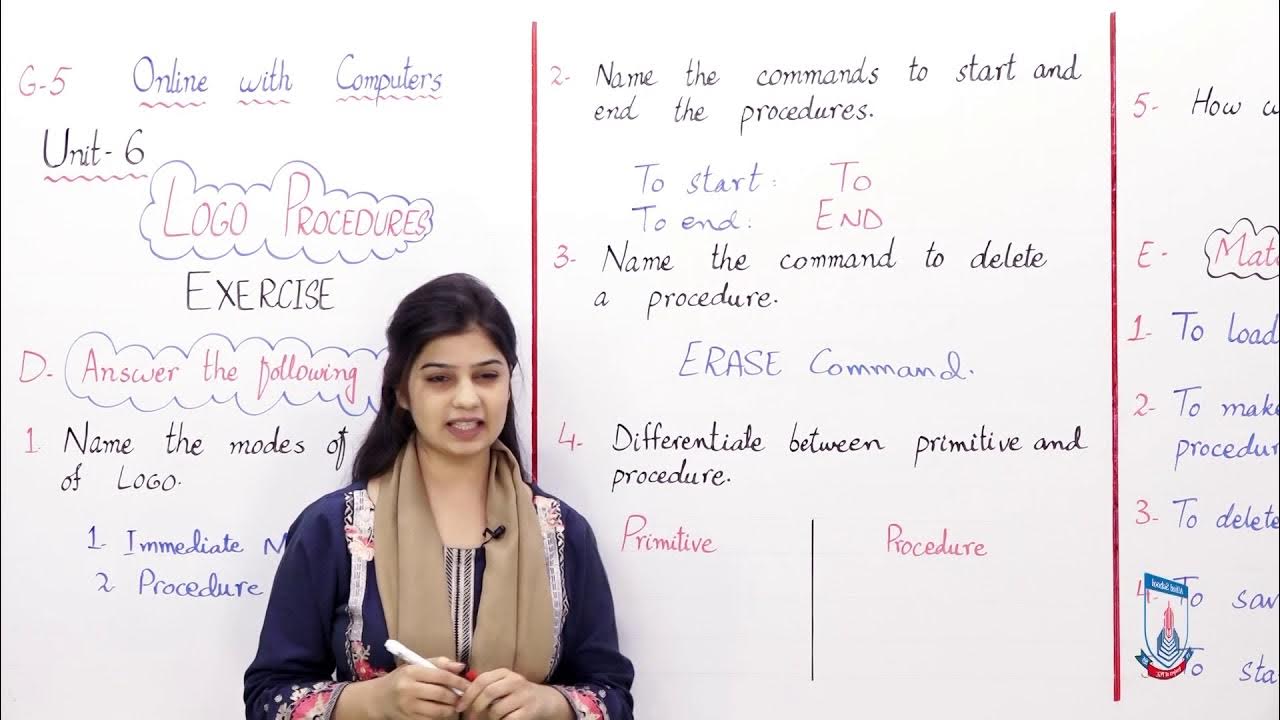 G-5 Online with Computers
Unit-6
LOGO PROCEDURES
EXERCISE
D. Answer the following
1. Name the modes of
of LOGO.
1. Immediate
2. Procedure
2- Name the commands to start and
end the procedures.
To start: TO
To end: END
3- Name the command to delete
a procedure.
ERASE Command.
4- Differentiate between primitive and
procedure.
Primitive Procedure
5- How
E-
1- To load
2- To make
3- To delete
4- To
To